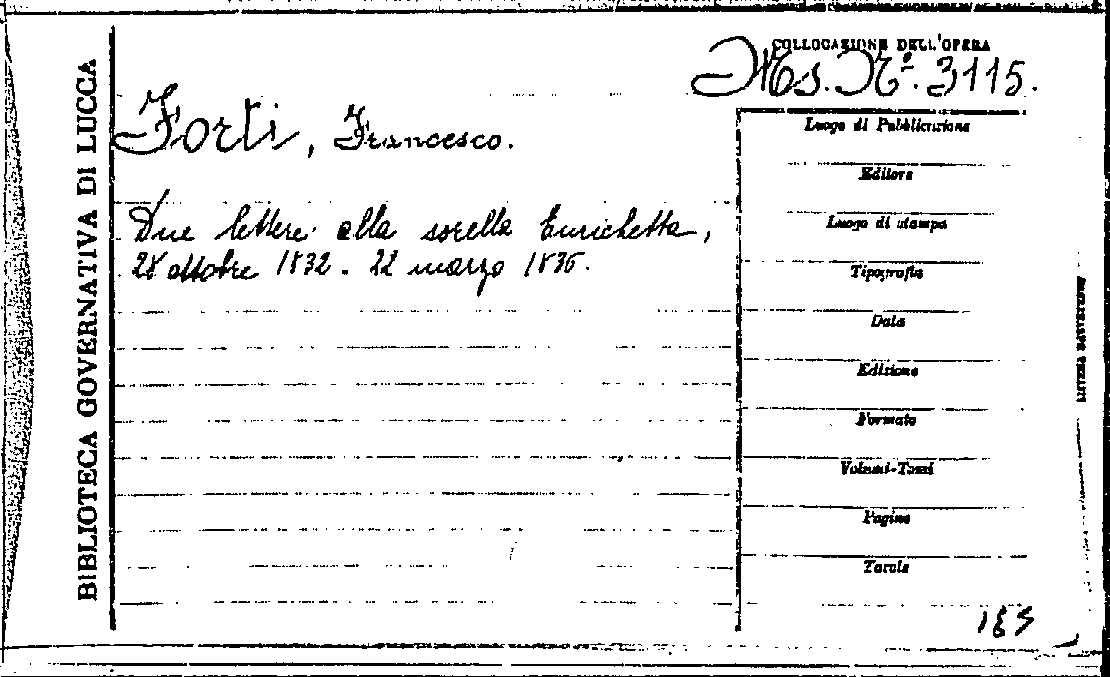 BIBLIOTECA GOVERNATIVA DI LUCCA
COLLOCAZIONE DELL'OPERA
Ms. Nº. 3115.
Forti, Francesco.
Due lettere alla sorella Enrichetta,
28 ottobre 1832 - 22 marzo 1836.
Luogo di Pubblicazione
Editore
Luogo di stampa
Tipografia
Data
Edizione
Formato
Volumi-Tomi
Pagine
Tavole